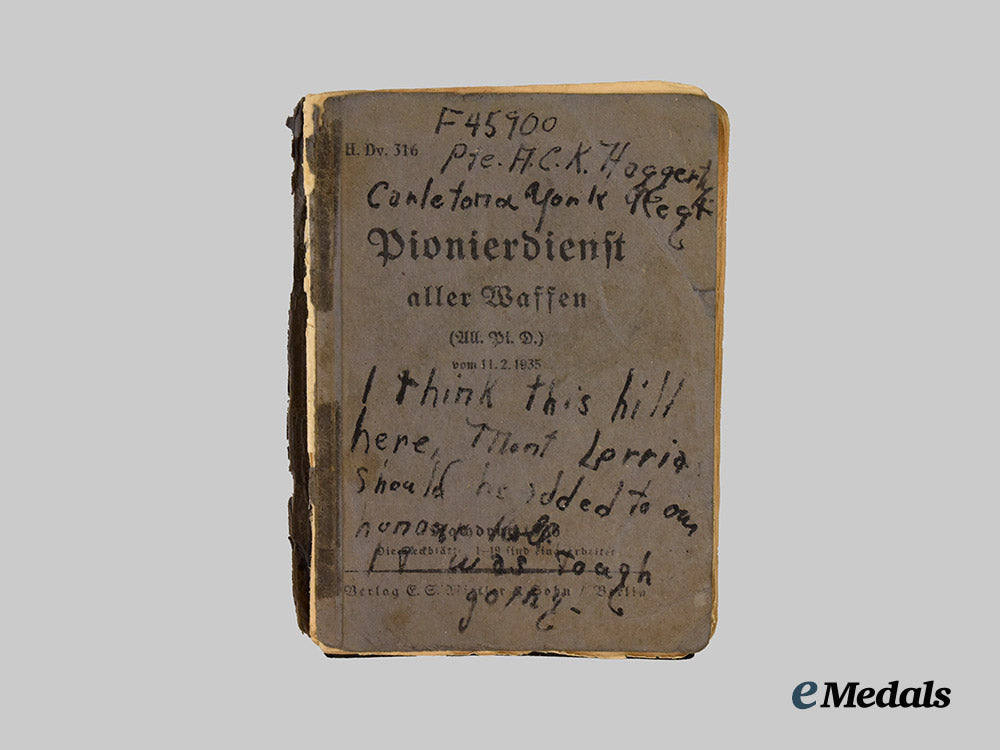 F45900
H. Dv. 316
Pte. A.C.K. Haggerty
Carleton & York Regt
Pionierdienst
aller Waffen
(All. Pi. D.)
vom 11. 2. 1935
I think this hill
here, Mont Lorria
should be added to our
honour
Die Deckblätter 1–19 sind eingearbeitet
It was tough
Verlag E. S. Mittler & Sohn / Berlin
going.
eMedals